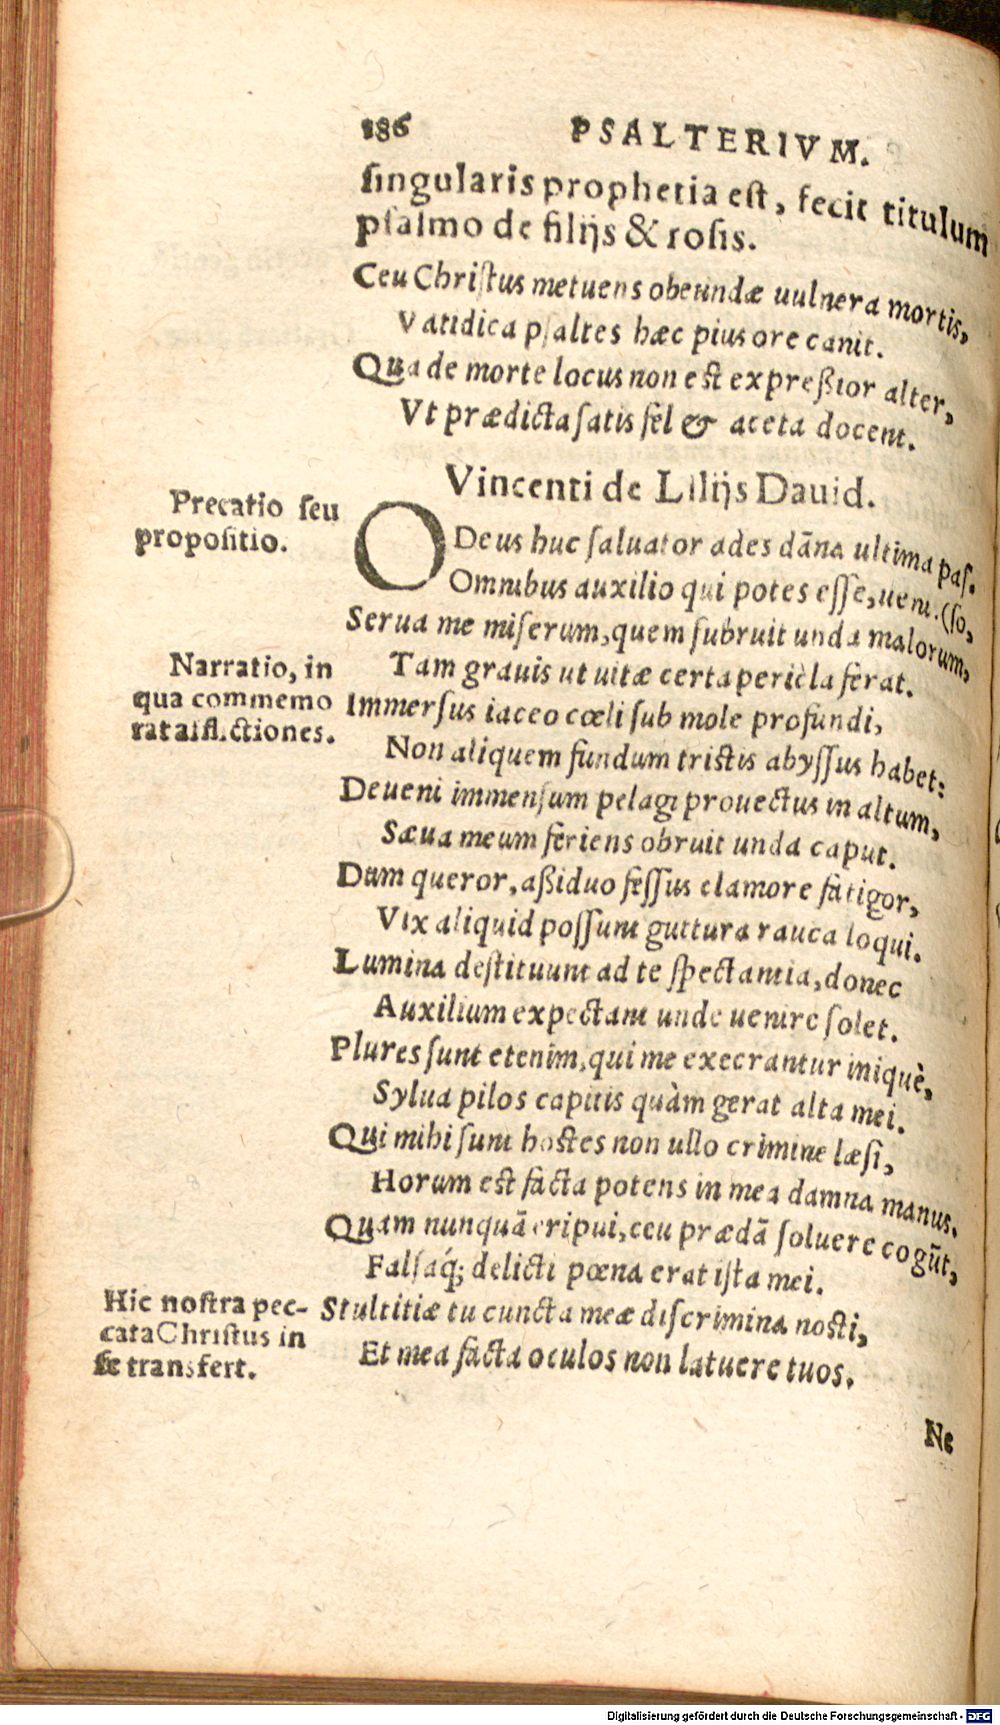 186 PSALTERIVM.
singularis prophetia est, fecit titulum
psalmo de filijs & rosis.
Ceu Christus metuens obeundæ uulnera mortis,
Vatidica psaltes hæc pius ore canit.
Qua de morte locus non est expreßior alter,
Vt prædicta satis fel & aceta docent.
Vincenti de Lilijs Dauid.
Precatio seu
propositio.
O Deus huc saluator ades dāna ultima pas-
Omnibus auxilio qui potes esse, ueni. (so,
Serua me miserum, quem subruit unda malorum,
Tam grauis ut uitæ certa pericla ferat.
Narratio, in
qua commemo
rat afflictiones.
Immersus iaceo cœli sub mole profundi,
Non aliquem fundum tristis abyssus habet:
Deueni immensum pelagi prouectus in altum,
Sæua meum feriens obruit unda caput.
Dum queror, aßiduo fessus clamore fatigor,
Vix aliquid possum guttura rauca loqui.
Lumina destituunt ad te spectantia, donec
Auxilium expectant unde uenire solet.
Plures sunt etenim, qui me execrantur iniquè,
Sylua pilos capitis quàm gerat alta mei.
Qui mihi sunt hostes non ullo crimine læsi,
Horum est facta potens in mea damna manus.
Quam nunquā eripui, ceu prædā soluere cogūt,
Falsaq́; delicti pœna erat ista mei.
Hic nostra pec-
cata Christus in
se transfert.
Stultitiæ tu cuncta meæ discrimina nosti,
Et mea facta oculos non latuere tuos.
Ne
Digitalisierung gefördert durch die Deutsche Forschungsgemeinschaft - DFG